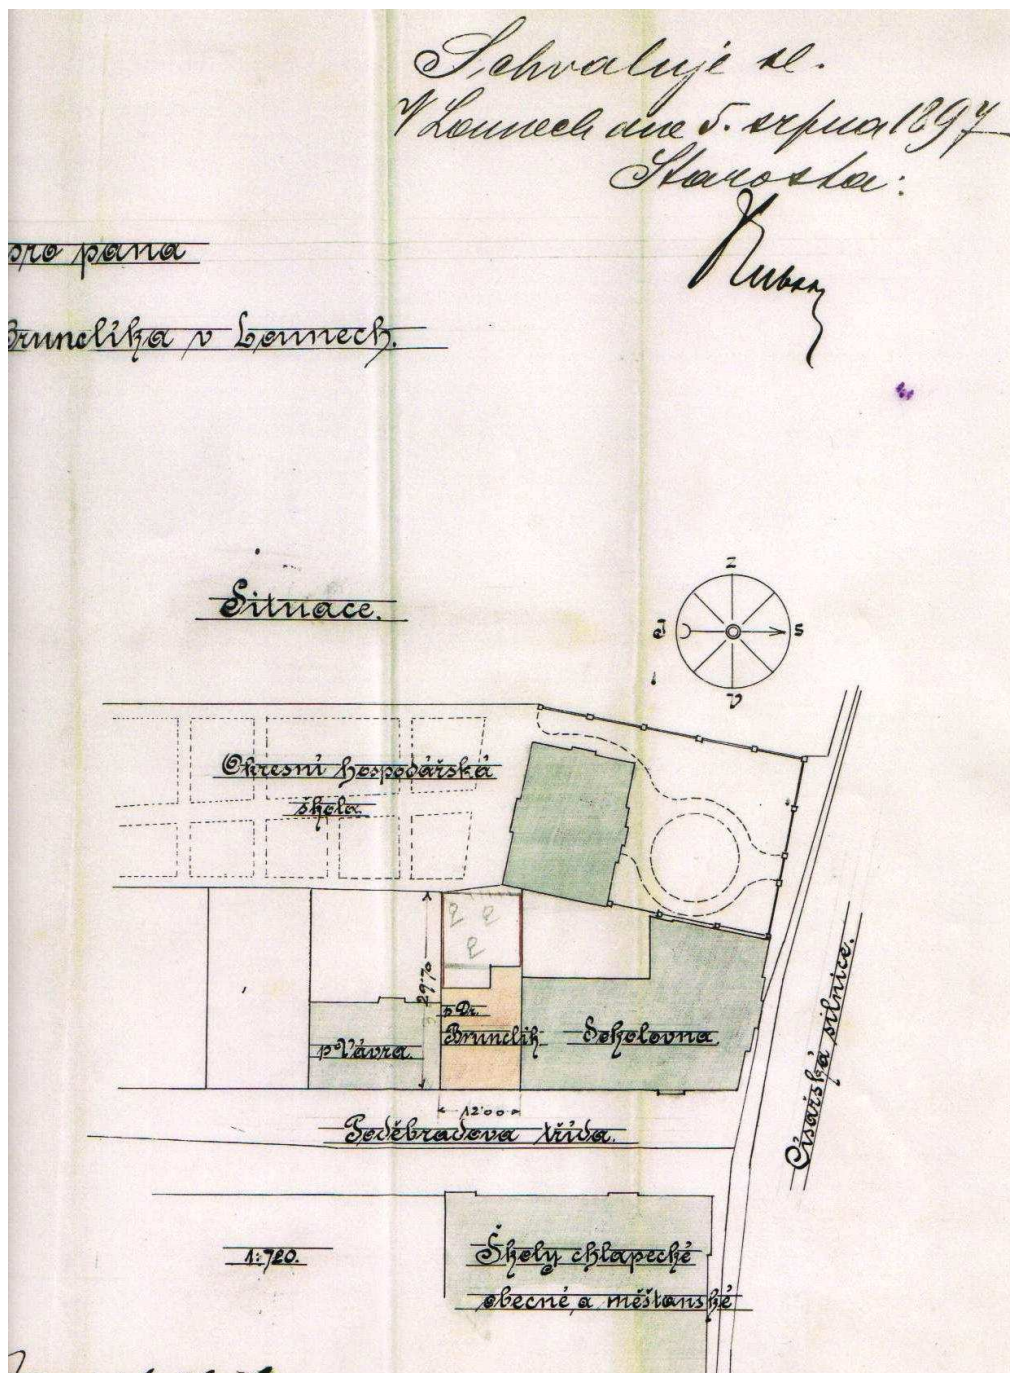 Schvaluje se.
V Lounech dne 5. srpna 1897
Starosta:
pro pana
Brunclíka v Lounech.
Situace.
Z
J
S
V
Okresní hospodářská
škola.
29·70
p. Dr.
Brunclík
Sokolovna
p. Vávra.
12·00
Poděbradova třída.
Císařská silnice.
1:720.
Školy chlapecké
obecné a měšťanské